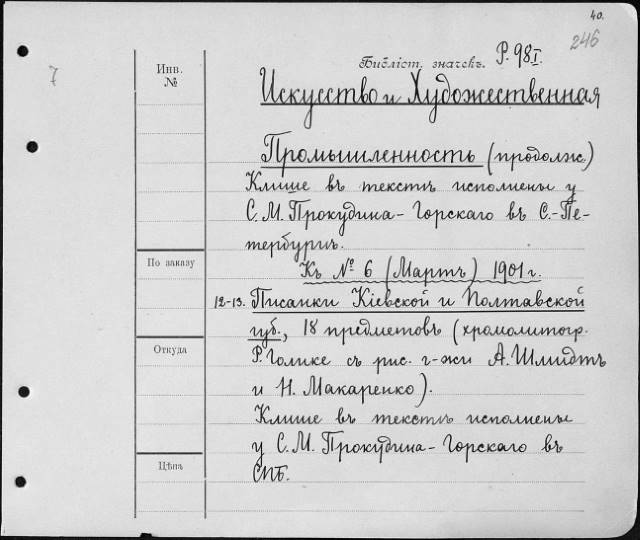 40.
246
7
Библіот. значекъ. Р. 98 I.
Инв. №
Искусство и Художественная
Промышленность (продолж.)
Клише въ текстѣ исполнены у
С. М. Прокудина-Горскаго въ С.-Пе-
тербургѣ.
По заказу
Къ № 6 (Мартъ) 1901 г.
12-13. Писанки Кіевской и Полтавской
губ., 18 предметовъ (хромолитогр.
Откуда
Р. Голике съ рис. г-жи А. Шмидтъ
и Н. Макаренко).
Клише въ текстѣ исполнены
у С. М. Прокудина-Горскаго въ
Цѣна
СПБ.